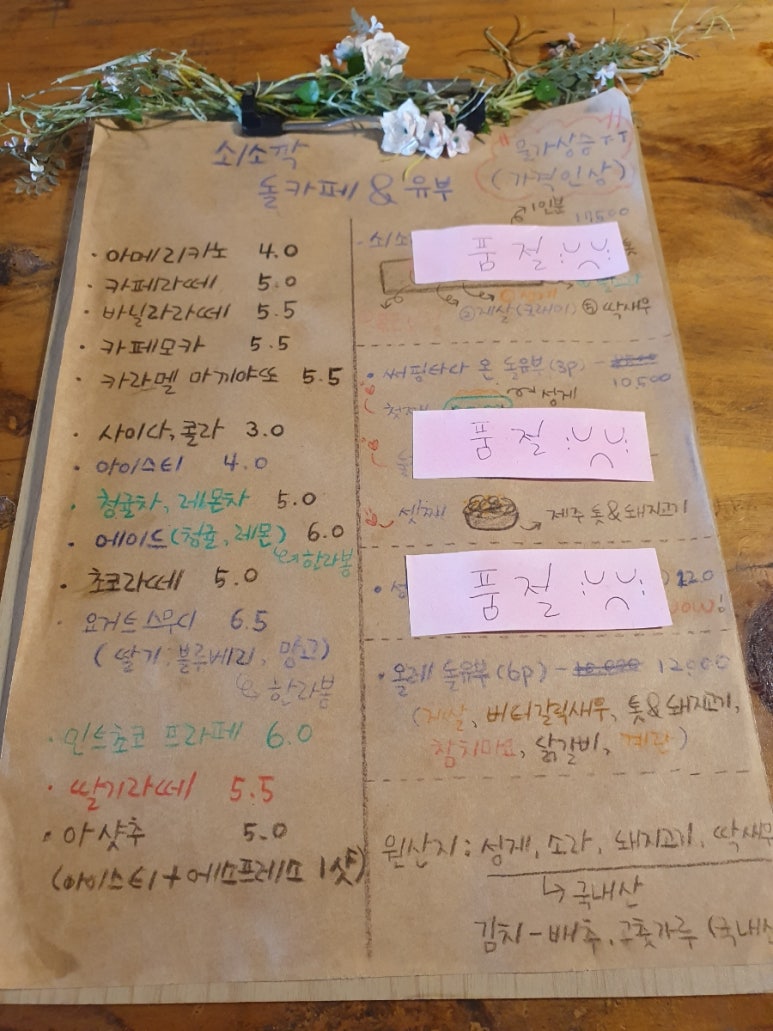 쇠소깍
돌카페 & 유부
"물가상승ㅜㅜ"
(가격인상)
· 아메리카노 4.0
· 카페라떼 5.0
· 바닐라라떼 5.5
· 카페모카 5.5
· 카라멜 마끼야또 5.5
· 사이다, 콜라 3.0
· 아이스티 4.0
· 청귤차, 레몬차 5.0
· 에이드(청귤, 레몬) 6.0
한라봉
· 초코라떼 5.0
· 요거트스무디 6.5
(딸기, 블루베리, 망고)
한라봉
· 민트초코 프라페 6.0
· 딸기라떼 5.5
· 아샷추 5.0
(아이스티 + 에스프레소 1샷)
1인분
17500
· 쇠소
품절
②게살(크래미) ⑤ 딱새우
· 써핑타다 온 돌유부(3p) -
10,500
성게
첫째
품절
셋째 제주 톳 & 돼지고기
품절
· 올레 돌유부(6p) - 10.000 12.000
(게살, 버터갈릭새우, 톳&돼지고기,
참치마요, 닭갈비, 계란)
원산지 : 성게, 소라, 돼지고기, 딱새우
↳ 국내산
김치 - 배추, 고춧가루 (국내산